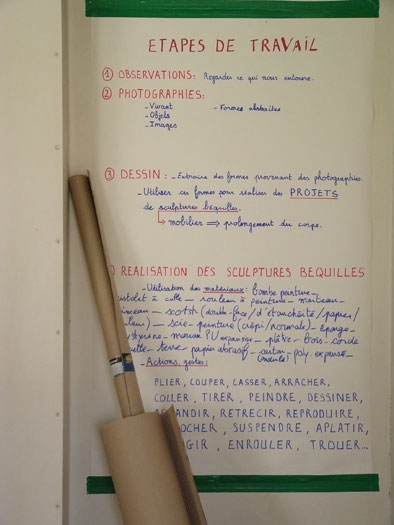 ETAPES DE TRAVAIL
① OBSERVATIONS: Regarder ce qui nous entoure.
② PHOTOGRAPHIES:
- Vivant - Formes abstraites
- Objets
- Images
③ DESSIN: - Extraire des formes provenant des photographies.
- Utiliser ces formes pour réaliser des PROJETS
de sculptures béquilles.
↳ mobilier ⇒ prolongement du corps.
REALISATION DES SCULPTURES BEQUILLES
- Utilisation des matériaux: bombe peinture_
à colle _ rouleau à peinture _ marteau_
scotch (double-face / d'étanchéité / papier/
) _ scie _ peinture (crépi / normale) _ éponge_
mousse PU expansive _ plâtre _ bois _ corde
terre _ papier abrasif _ carton _ poly. expansé_
- Actions, gestes:
PLIER, COUPER, CASSER, ARRACHER,
COLLER, TIRER, PEINDRE, DESSINER,
RETRECIR, REPRODUIRE,
SUSPENDRE, APLATIR,
ENROULER, TROUER...